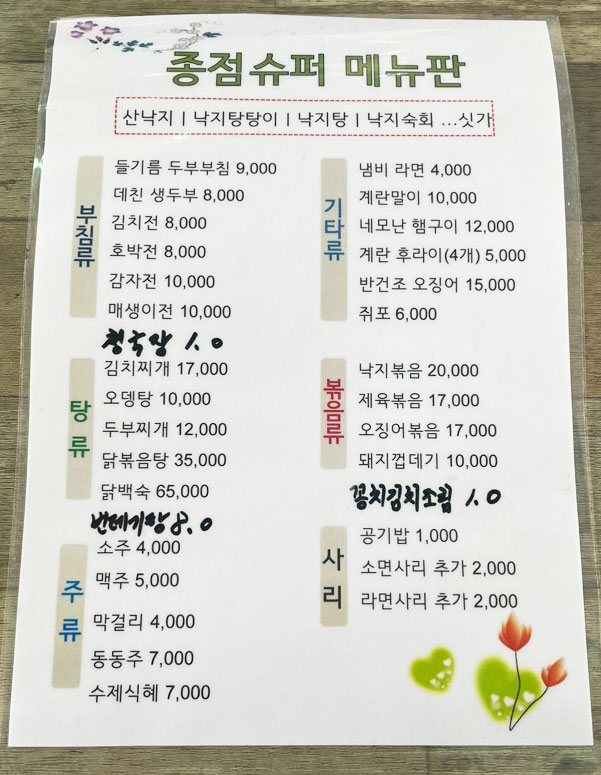 종점슈퍼 메뉴판
산낙지 | 낙지탕탕이 | 낙지탕 | 낙지숙회 ...싯가
부침류
들기름 두부부침 9,000
데친 생두부 8,000
김치전 8,000
호박전 8,000
감자전 10,000
매생이전 10,000
청국장 1.0
탕류
김치찌개 17,000
오뎅탕 10,000
두부찌개 12,000
닭볶음탕 35,000
닭백숙 65,000
번데기탕 8.0
주류
소주 4,000
맥주 5,000
막걸리 4,000
동동주 7,000
수제식혜 7,000
기타류
냄비 라면 4,000
계란말이 10,000
네모난 햄구이 12,000
계란 후라이(4개) 5,000
반건조 오징어 15,000
쥐포 6,000
볶음류
낙지볶음 20,000
제육볶음 17,000
오징어볶음 17,000
돼지껍데기 10,000
꽁치김치조림 1.0
사리
공기밥 1,000
소면사리 추가 2,000
라면사리 추가 2,000